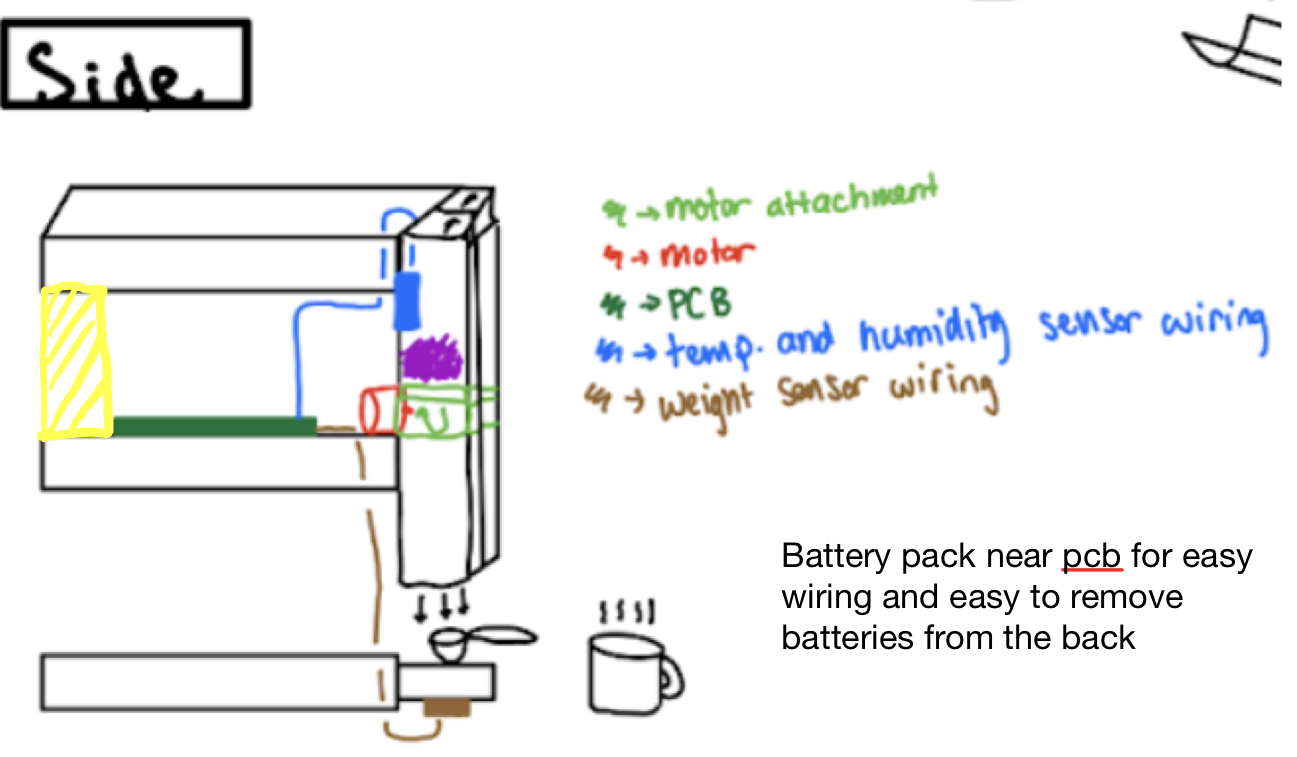 Side
→ motor attachment
→ motor
→ PCB
→ temp. and humidity sensor wiring
→ weight sensor wiring
Battery pack near pcb for easy
wiring and easy to remove
batteries from the back